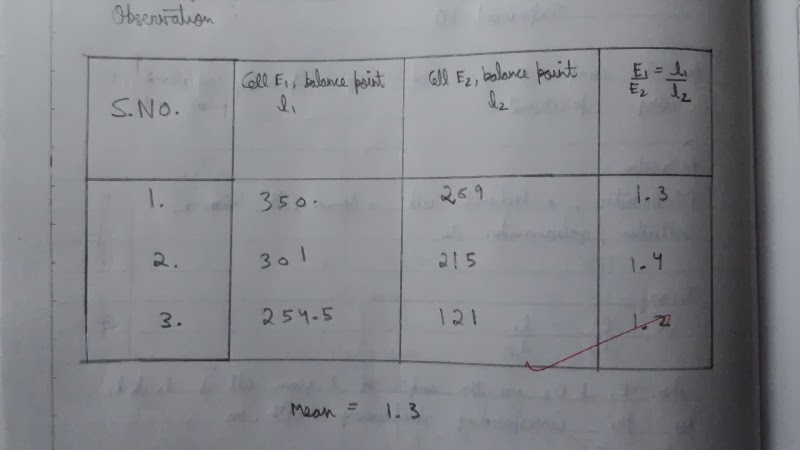 Observation
S.No.
Cell E1, balance point
l1
Cell E2, balance point
l2
E1/E2 = l1/l2
1. 350. 269 1.3
2. 301 215 1.4
3. 254.5 121 1.2
Mean = 1.3